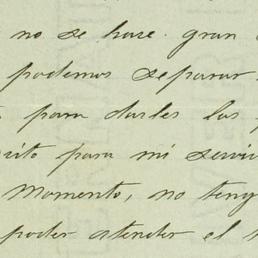 no se hase gran
podemos separar
para darles las
para mi servi
Momento, no teng
poder atender el